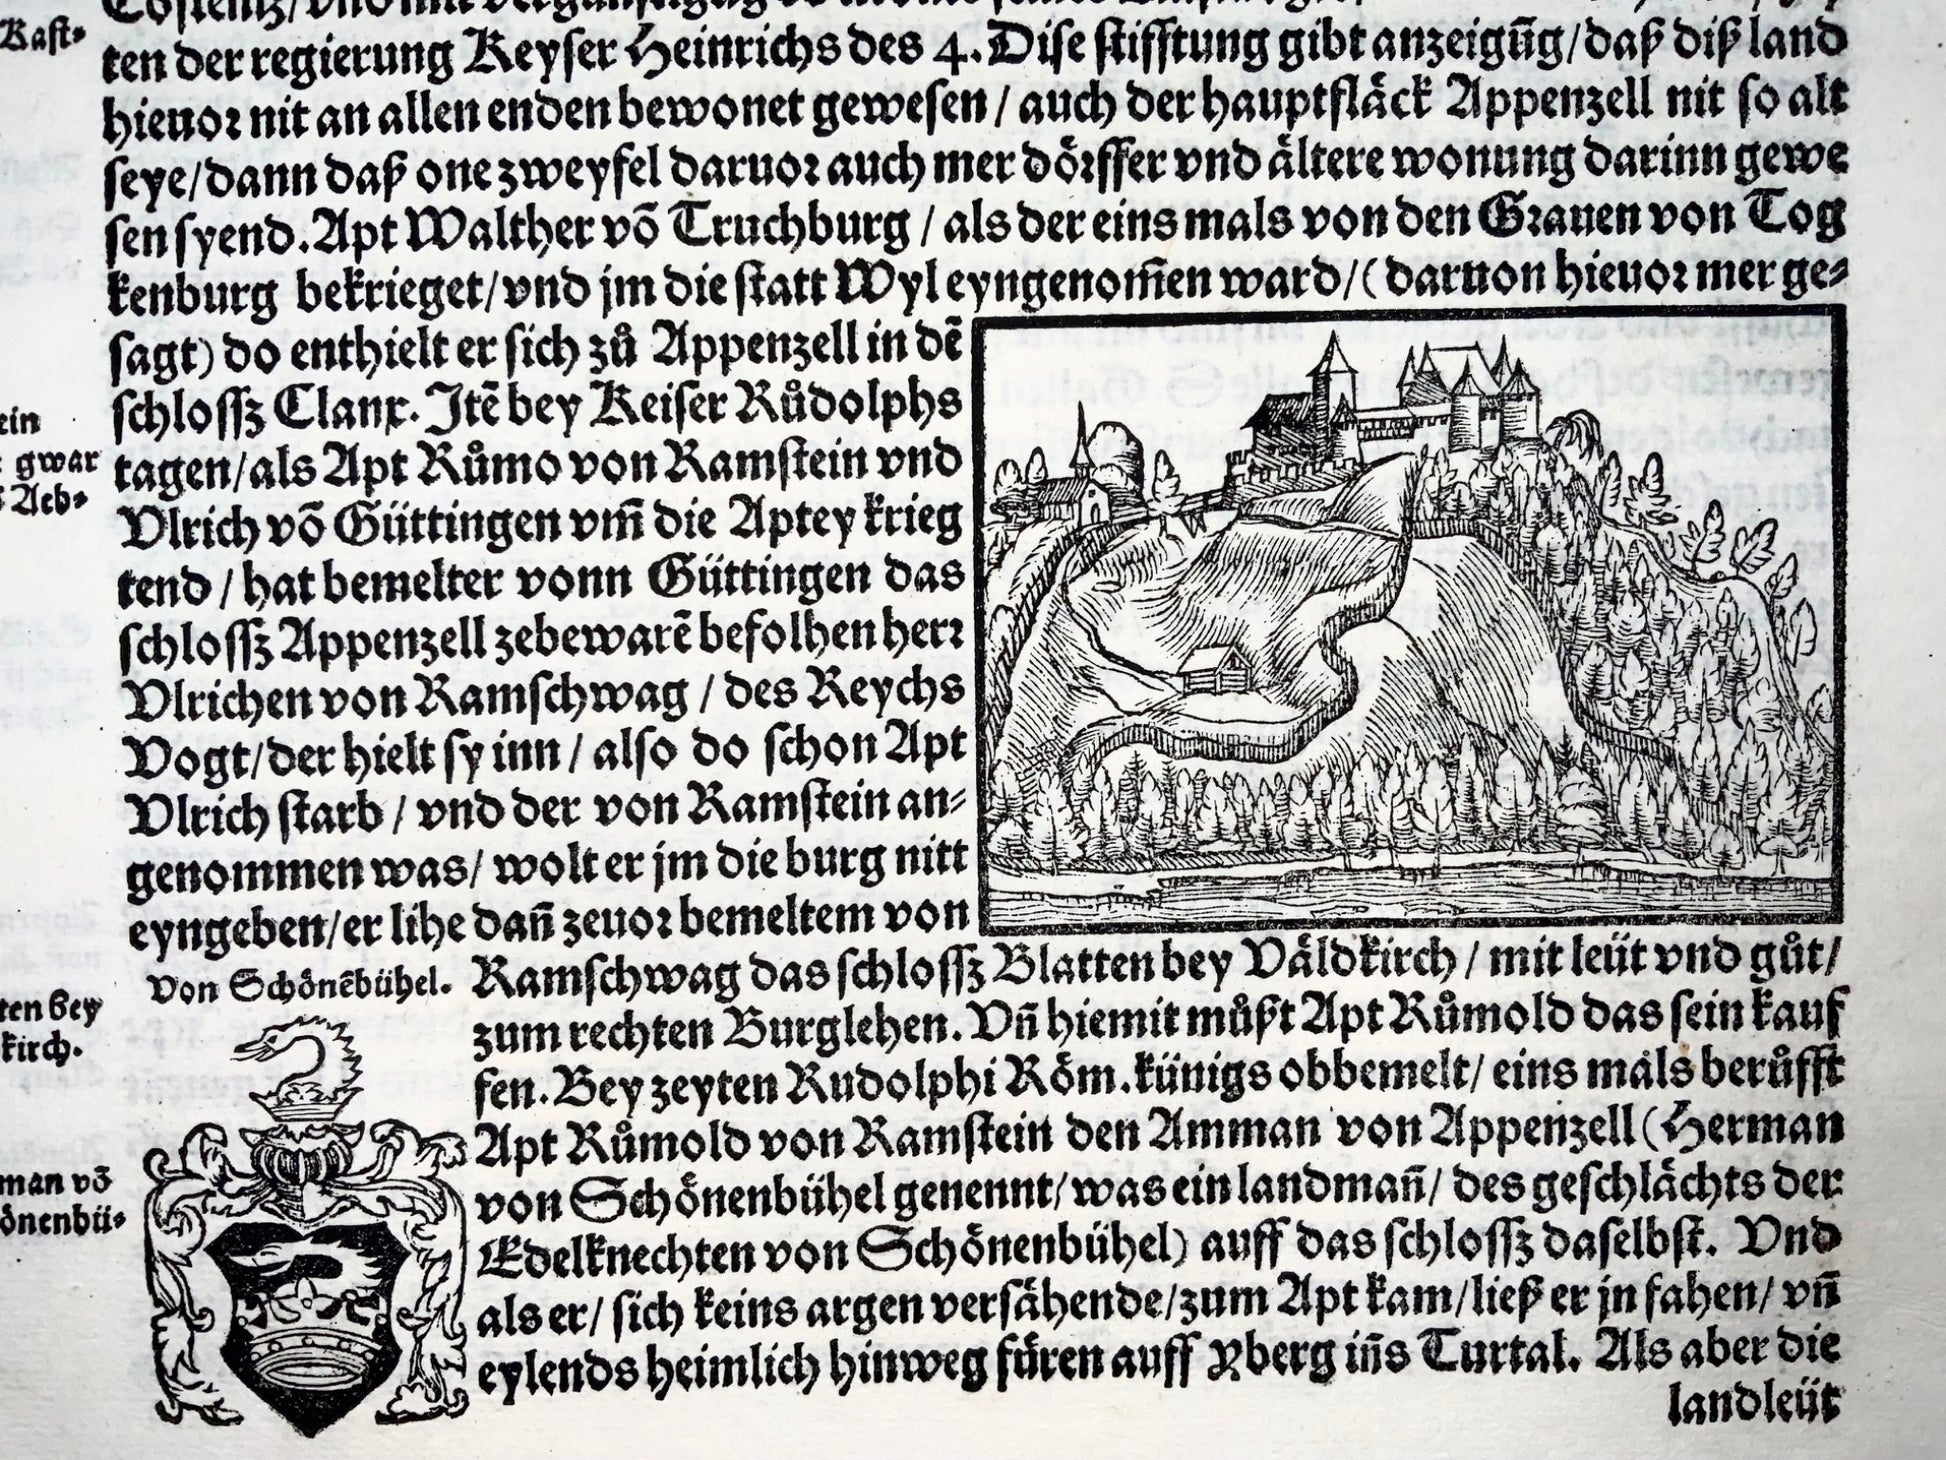 Kast⸗
ten der regierung Keyser Heinrichs des 4. Dise stifftung gibt anzeigūg/daß diß land
hieuor nit an allen enden bewonet gewesen / auch der hauptfläck Appenzell nit so alt
seye/dann daß one zweyfel daruor auch mer dörffer vnd ältere wonung darinn gewe
sen syend. Apt Walther vō Truchburg / als der eins mals von den Grauen von Tog
kenburg bekrieget/vnd jm die statt Wyl eyngenom̄en ward/( daruon hieuor mer ge⸗
sagt) do enthielt er sich zů Appenzell in dē
schlossz Clanx. Itē bey Keiser Růdolphs
tagen/als Apt Růmo von Ramstein vnd
Vlrich vō Güttingen vm̄ die Aptey krieg
tend / hat bemelter vonn Güttingen das
schlossz Appenzell zebewarē befolhen herr
Vlrichen von Ramschwag / des Reychs
Vogt/der hielt sy inn / also do schon Apt
Vlrich starb / vnd der von Ramstein an⸗
genommen was/ wolt er jm die burg nitt
eyngeben/er lihe dañ zeuor bemeltem von
Ramschwag das schlossz Blatten bey Väldkirch / mit leüt vnd gůt/
zum rechten Burglehen. Vñ hiemit můßt Apt Růmold das sein kauf
fen. Bey zeyten Rudolphi Röm. künigs obbemelt/ eins mals berůfft
Apt Růmold von Ramstein den Amman von Appenzell (Herman
von Schönenbühel genennt/ was ein landmañ/ des geschlächts der
Edelknechten von Schönenbühel) auff das schlossz daselbst. Vnd
als er/ sich keins argen versähende/zum Apt kam/ließ er jn fahen/ vñ
eylends heimlich hinweg füren auff Yberg iñs Turtal. Als aber die
landleüt
Von Schönēbühel.
ein
gwar
Aeb⸗
ten bey
kirch.
man vō
önenbü⸗